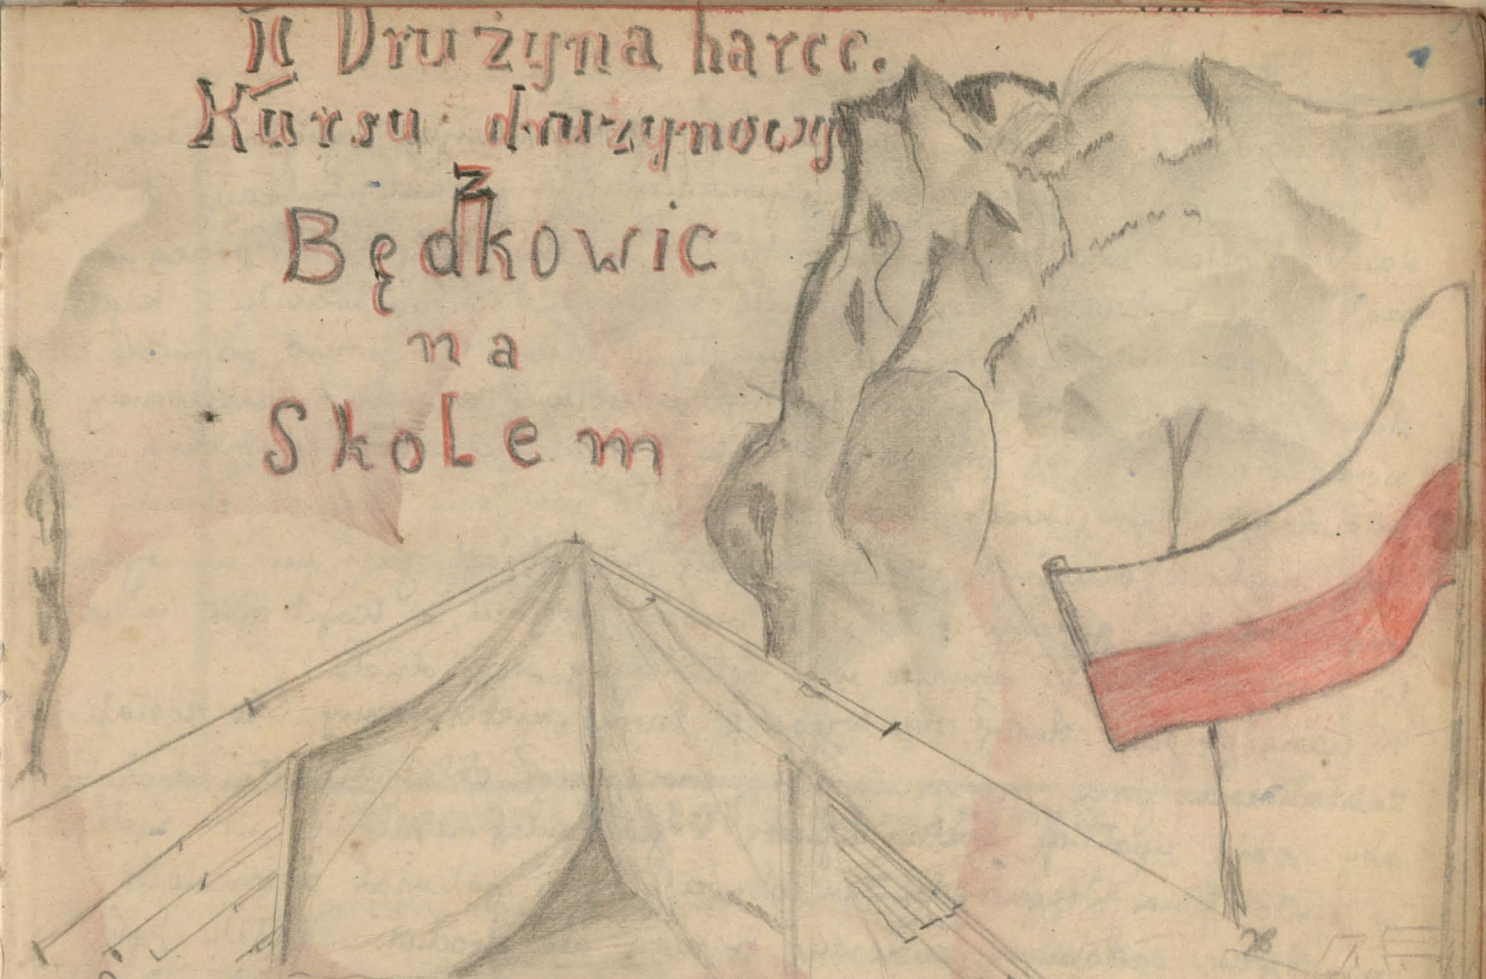 II Drużyna harcc.
Kursu drużynowy
z
Będkowic
na
Skolem